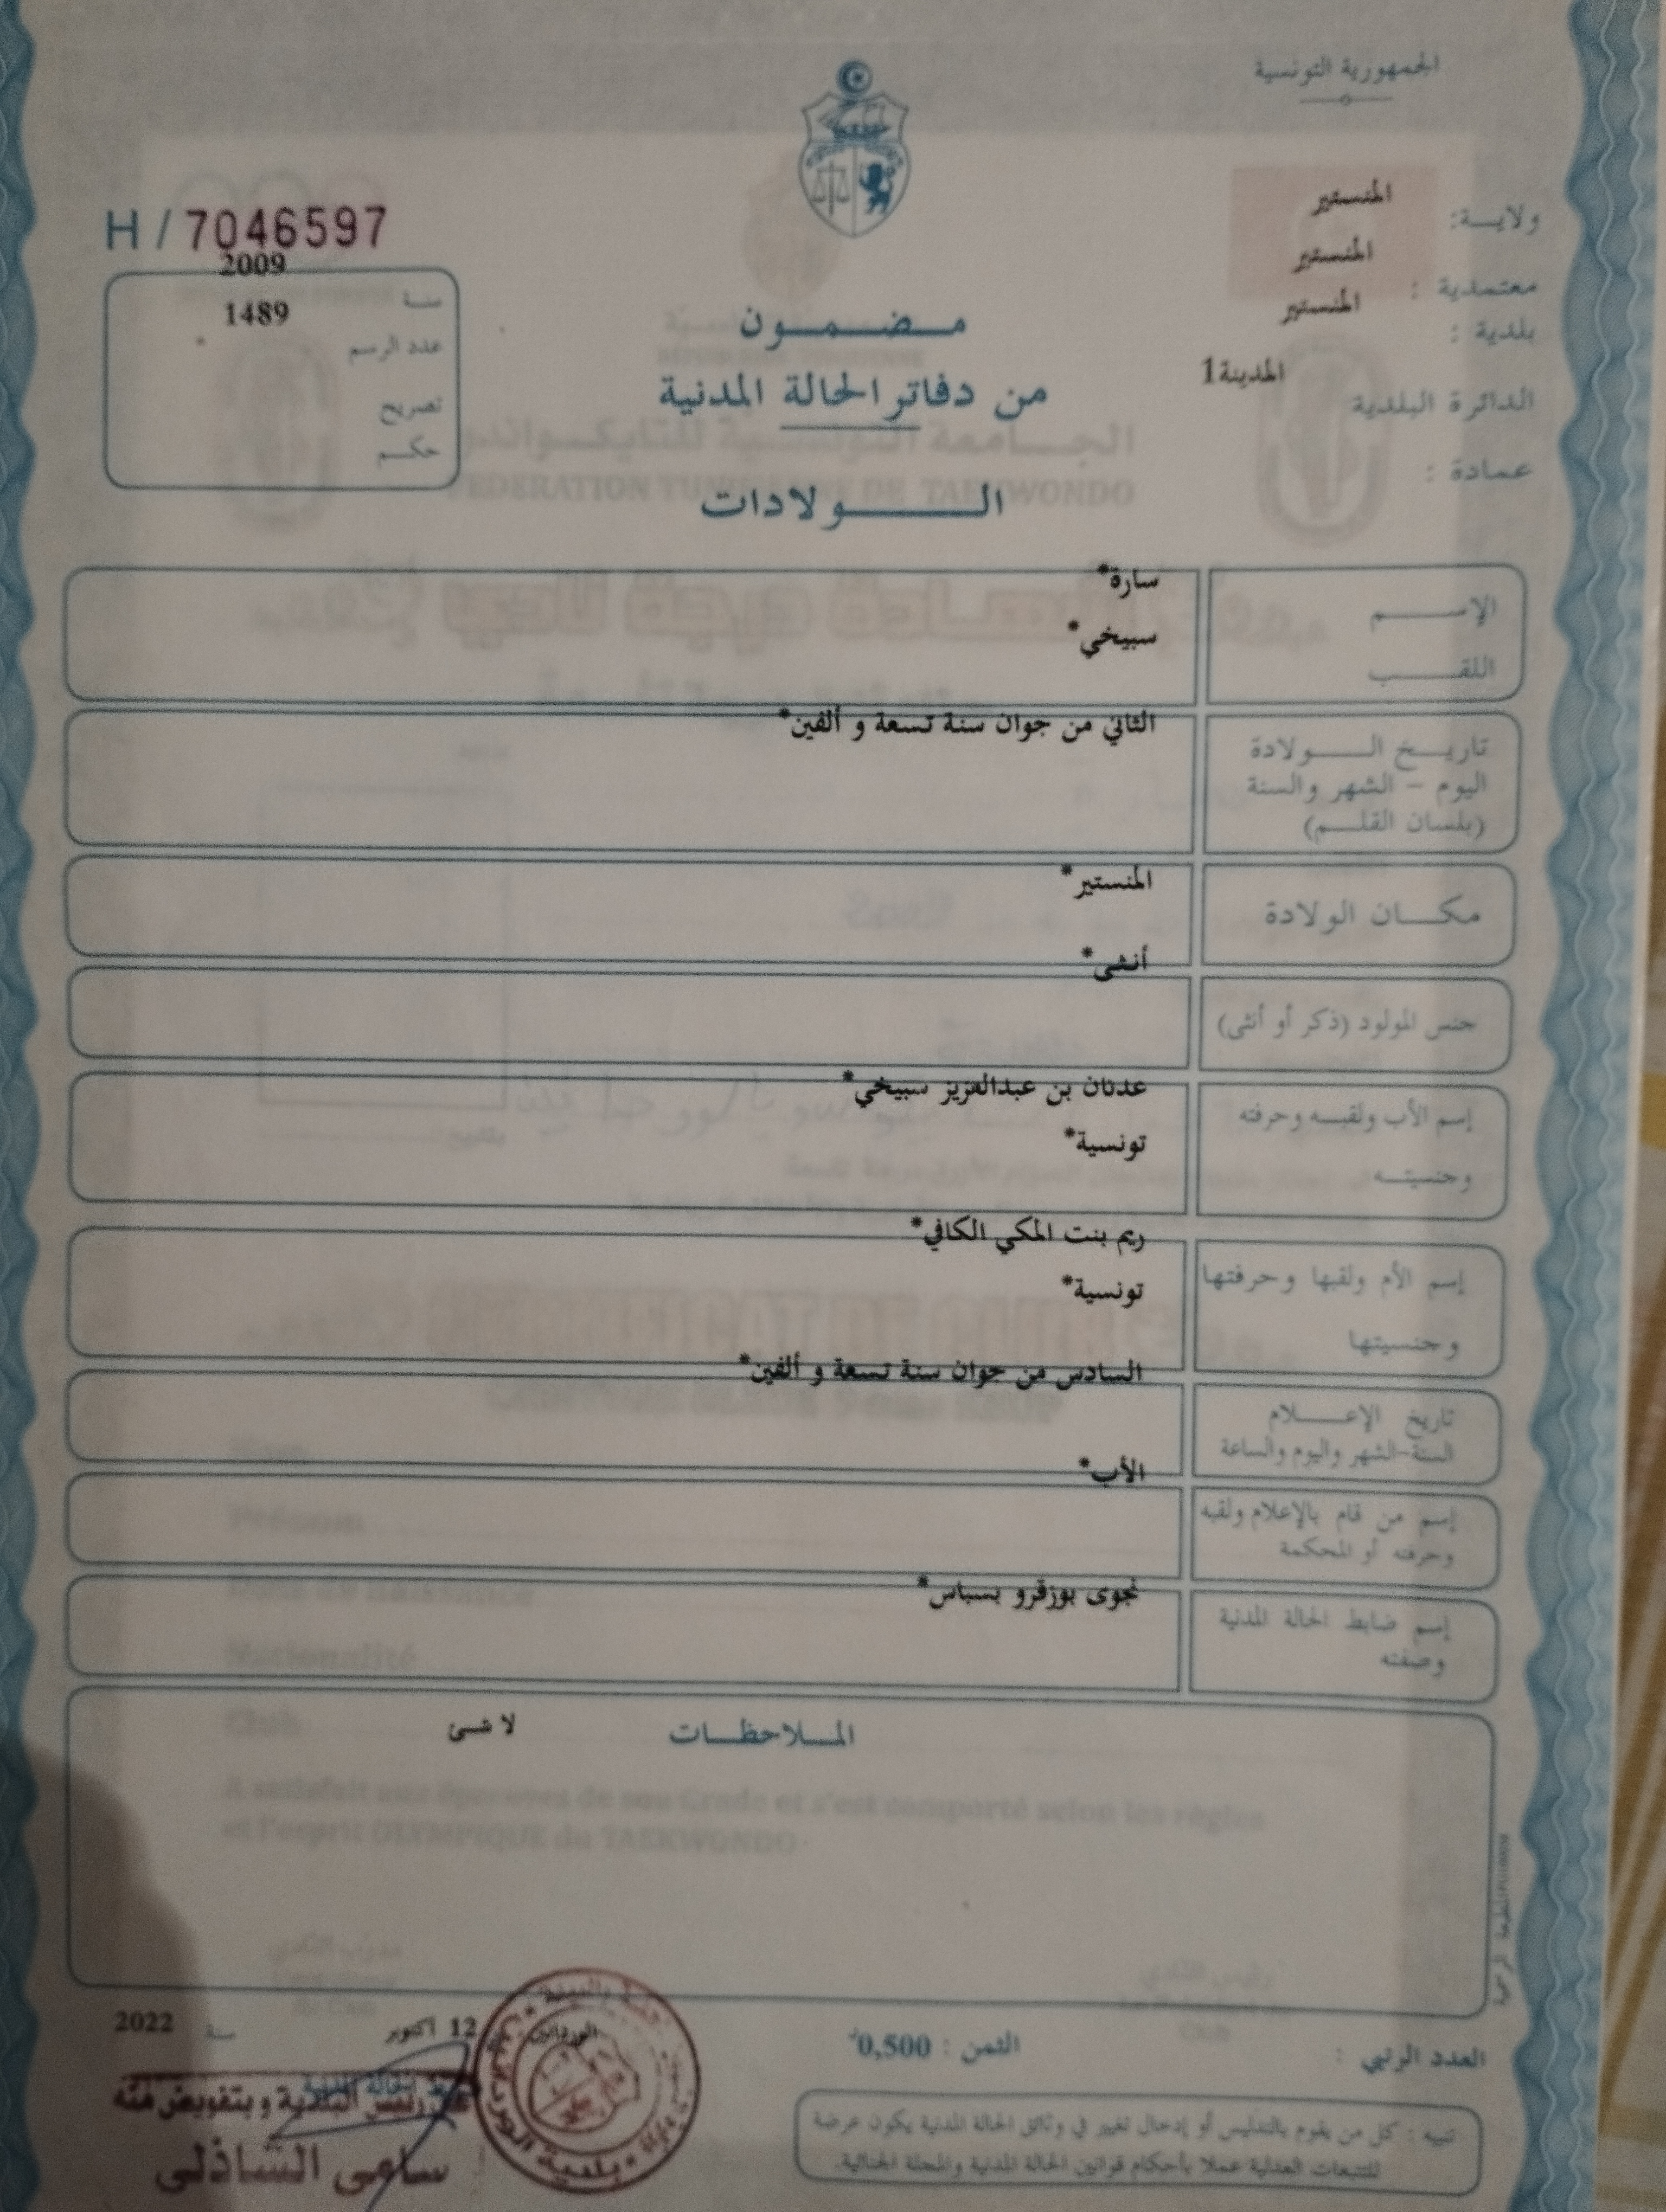 الجمهورية التونسية
ولاية: المنستير
معتمدية : المنستير
بلدية : المنستير
الدائرة البلدية المدينة1
عمادة :
H / 7046597
سنة 2009
عدد الرسم 1489
تصريح
حكم
مضمون
من دفاتر الحالة المدنية
الولادات
الإسم سارة*
اللقب سبيخي*
تاريخ الولادة الثاني من جوان سنة تسعة و ألفين*
اليوم – الشهر والسنة
(بلسان القلم)
مكان الولادة المنستير*
جنس المولود (ذكر أو أنثى) أنثى*
إسم الأب ولقبه وحرفته عدنان بن عبدالعزيز سبيخي*
وجنسيته تونسية*
إسم الأم ولقبها وحرفتها ريم بنت المكي الكافي*
وجنسيتها تونسية*
تاريخ الإعلام السادس من جوان سنة تسعة و ألفين*
السنة-الشهر واليوم والساعة
إسم من قام بالإعلام ولقبه الأب*
وحرفته أو المحكمة
إسم ضابط الحالة المدنية نجوى بوزقرو بسباس*
وصفته
الملاحظات لا شئ
A satisfait aux épreuves de son Grade et s'est comporté selon les règles
et l'esprit OLYMPIQUE du TAEKWONDO
العدد الرتبي :
الثمن : 0,500د
12 أكتوبر سنة 2022
عن رئيس البلدية و بتفويض منه
سامي الشاذلي
تنبيه : كل من يقوم بالتدليس أو إدخال تغيير في وثائق الحالة المدنية يكون عرضة
للتتبعات العدلية عملا بأحكام قوانين الحالة المدنية والمجلة الجنائية.